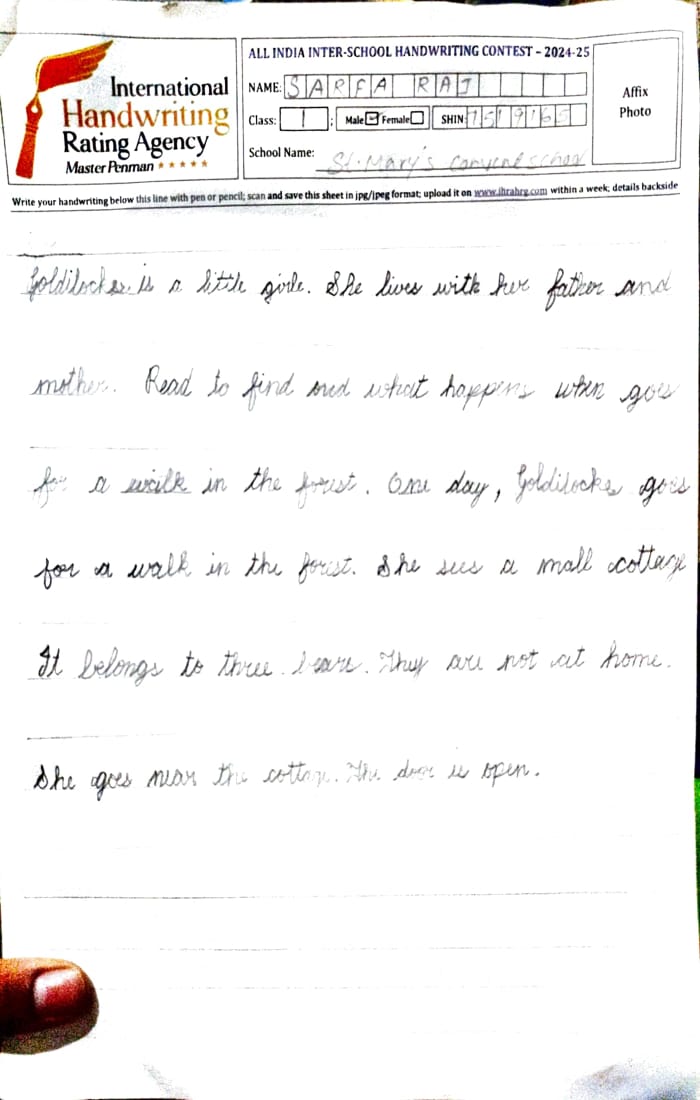 International
Handwriting
Rating Agency
Master Penman
ALL INDIA INTER-SCHOOL HANDWRITING CONTEST – 2024-25
NAME: SARFA RAJ
Class: 1 : Male Female SHIN: 1519165
School Name: St. Mary's convent school
Affix
Photo
Write your handwriting below this line with pen or pencil; scan and save this sheet in jpg/jpeg format; upload it on www.ihrahrg.com within a week; details backside
Goldilocks is a little girle. She lives with her father and
mother. Read to find out what happens when goes
for a walk in the forist. One day, Goldilocks goes
for a walk in the forist. She sees a mall cottage
It belongs to three bears. They are not at home.
She goes near the cottage. The door is open.